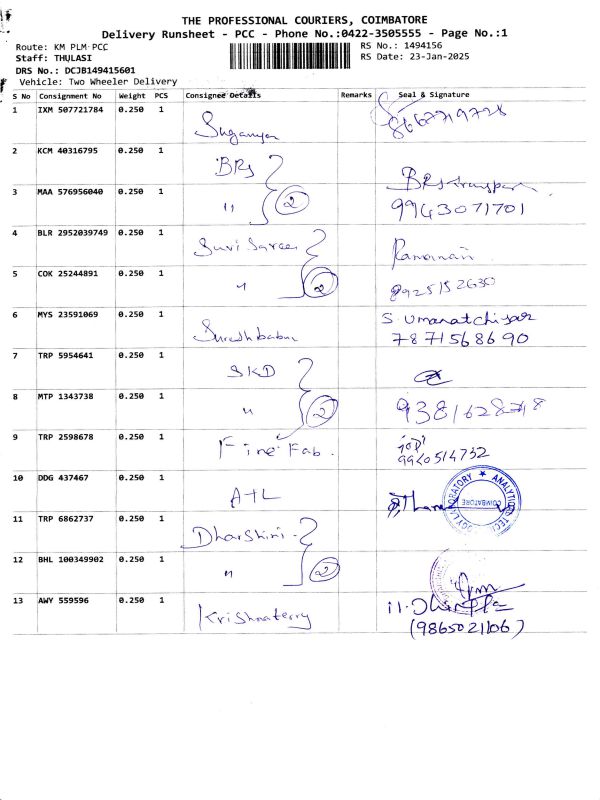 THE PROFESSIONAL COURIERS, COIMBATORE
Delivery Runsheet - PCC - Phone No.:0422-3505555 - Page No.:1
Route: KM PLM PCC
RS No.: 1494156
Staff: THULASI
RS Date: 23-Jan-2025
DRS No.: DCJB149415601
Vehicle: Two Wheeler Delivery
S No Consignment No Weight PCS Consignee Details Remarks Seal & Signature
1 IXM 507721784 0.250 1 8667719728
2 KCM 40316795 0.250 1 BRS
3 MAA 576956040 0.250 1 " 2 9943071701
4 BLR 2952039749 0.250 1 Suvi Sarees Ramanan
5 COK 25244891 0.250 1 " 2 8925152630
6 MYS 23591069 0.250 1 Sureshbabu S. Umanatchiyar
7871568690
7 TRP 5954641 0.250 1 SKD
8 MTP 1343738 0.250 1 " 2
9 TRP 2598678 0.250 1 Fine Fab. 9940514732
10 DDG 437467 0.250 1 ATL
11 TRP 6862737 0.250 1 Dharshini
12 BHL 100349902 0.250 1 " 2
13 AWY 559596 0.250 1 Krishnaterry
(9865021106)